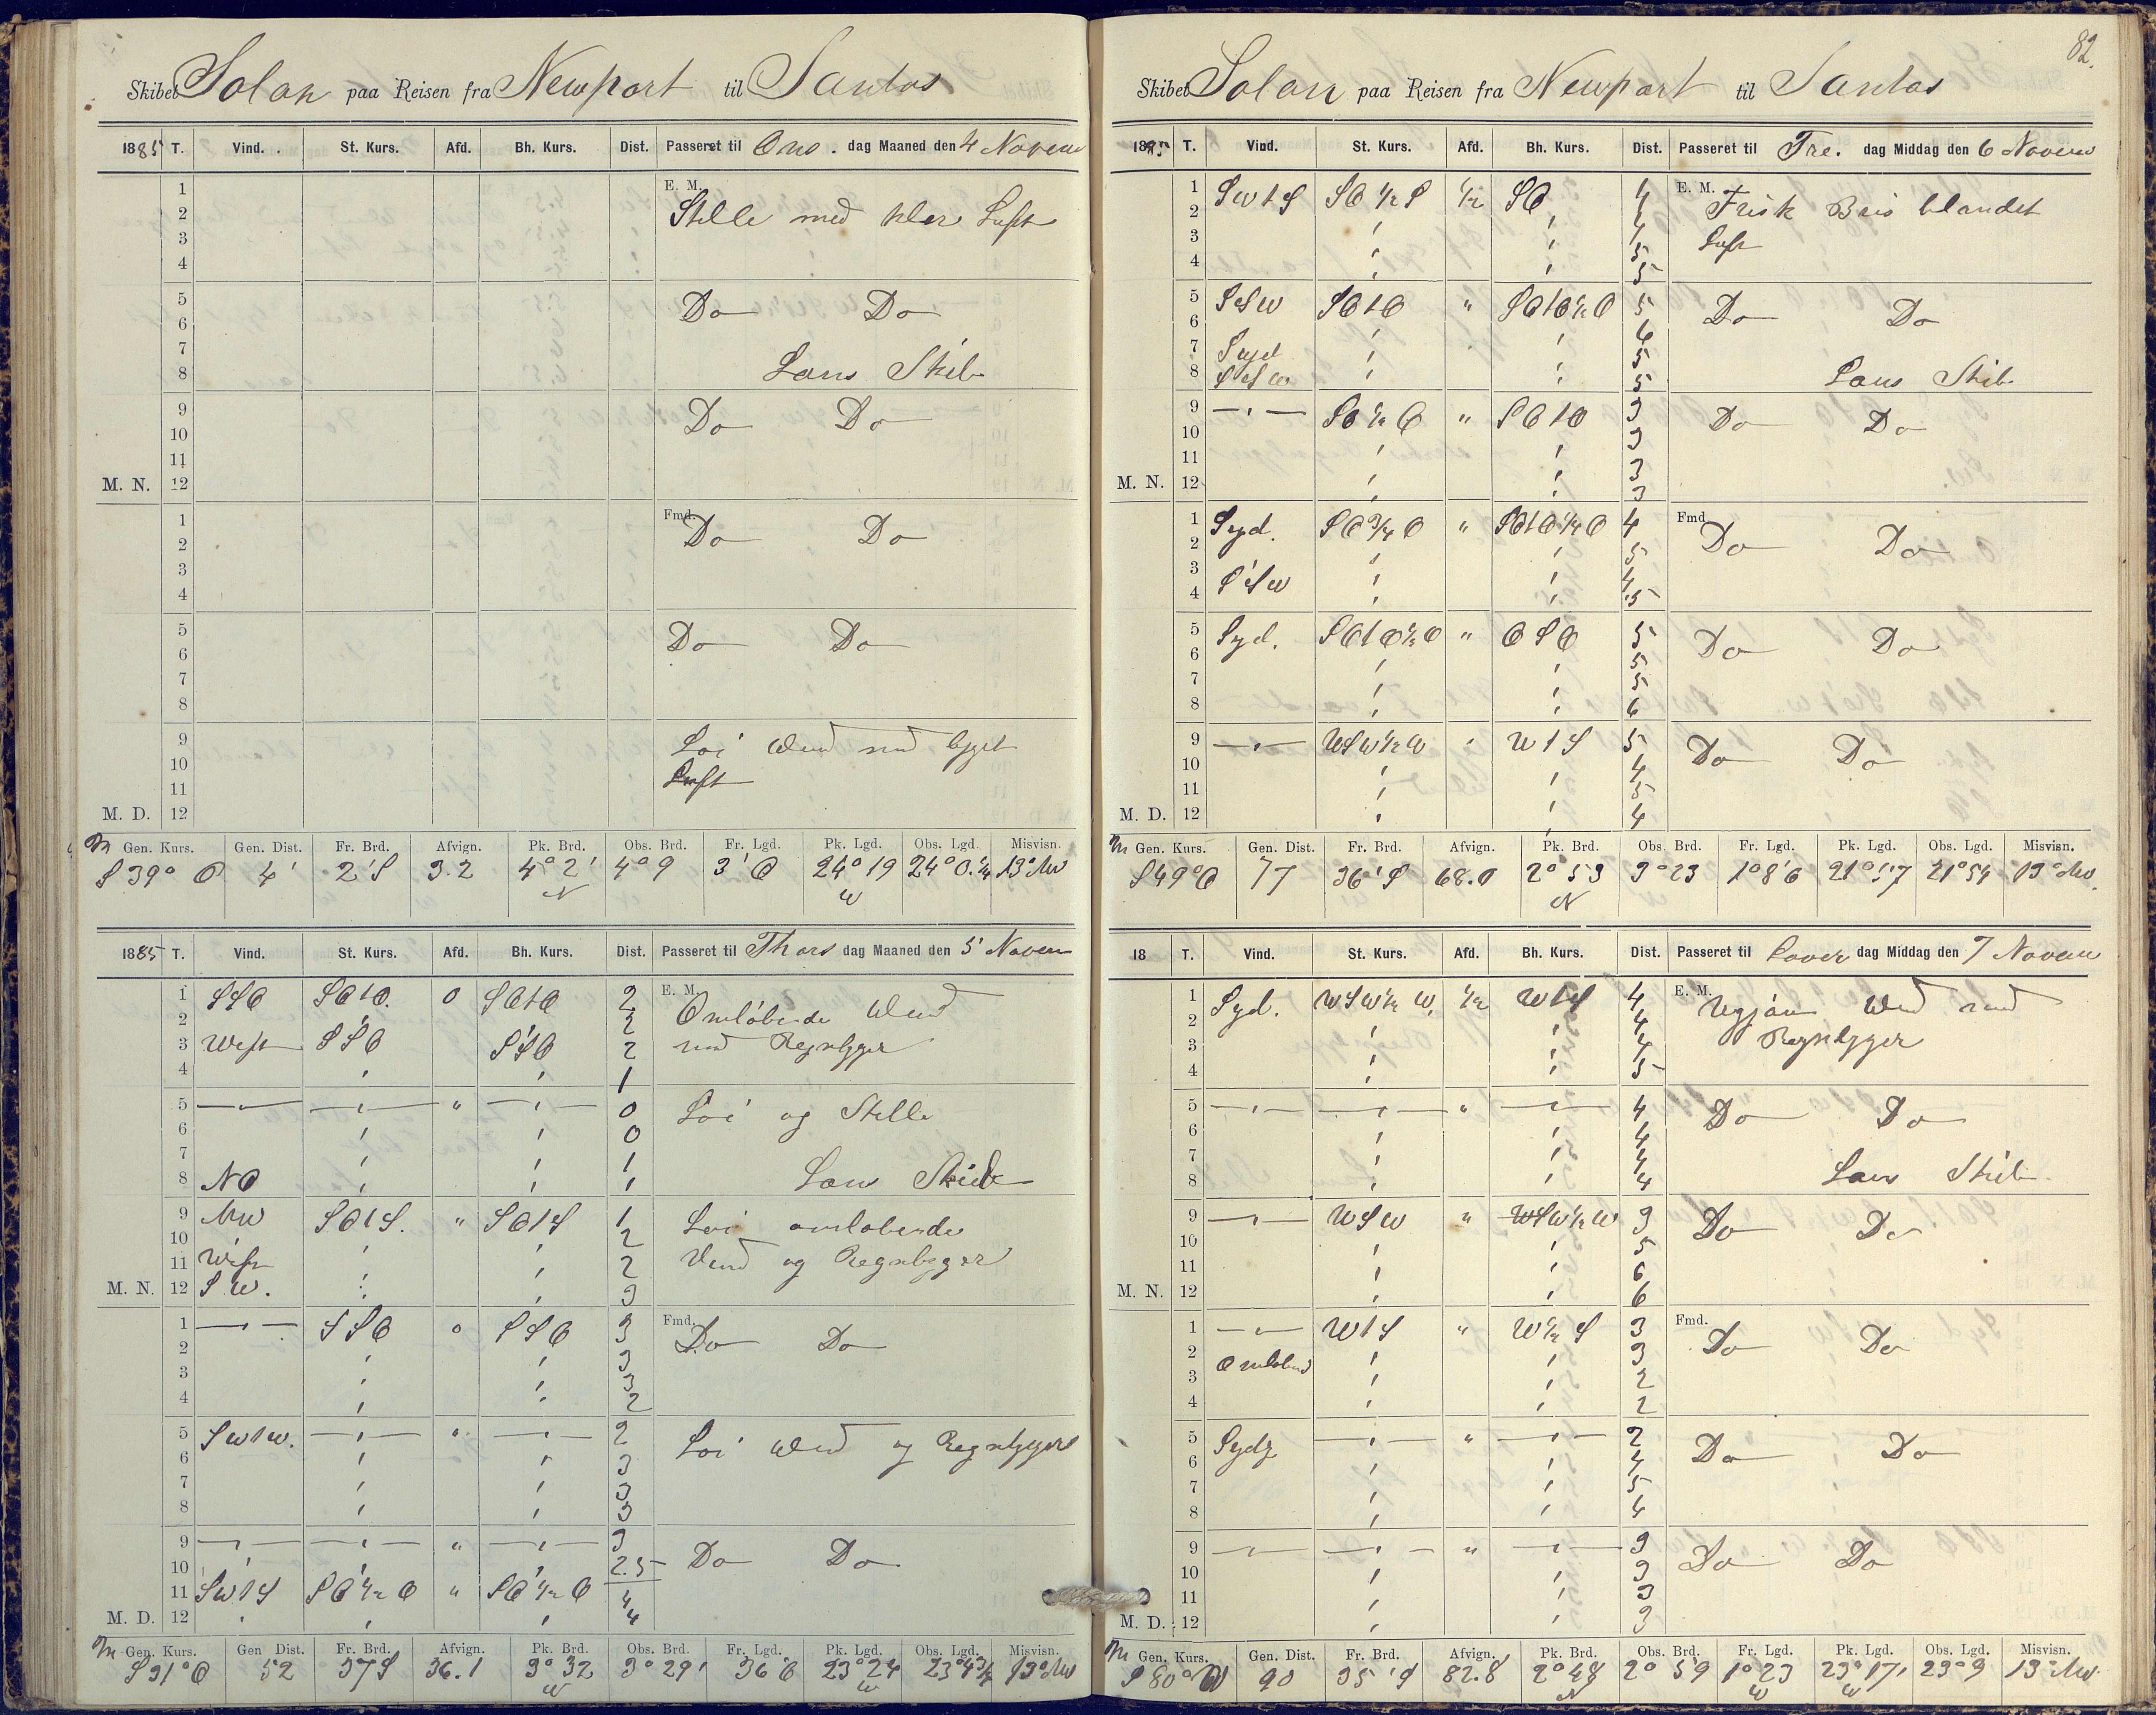 Skibet Solon paa Reisen fra Newport til Santos
1885 T. Vind. St. Kurs. Afd. Bh. Kurs. Dist. Passeret til Ons. dag Maaned den 4 Novem
E. M.
1
2 Stille med klar Luft
3
4
5 Do Do
6
7
8 Lens Skib
9 Do Do
10
11
M. N. 12
Fmd.
1 Do Do
2
3
4
5 Do Do
6
7
8
9 Loi Wind med bygt
10 Luft
11
M. D. 12
Gen. Kurs. Gen. Dist. Fr. Brd. Afvign. Pk. Brd. Obs. Brd. Fr. Lgd. Pk. Lgd. Obs. Lgd. Misvisn.
S 39° O 4' 2'S 3.2 4° 2' N 4° 9 3' O 24° 19 W 24° 0.¼ 13° NW
1885 T. Vind. St. Kurs. Afd. Bh. Kurs. Dist. Passeret til Thors dag Maaned den 5 Novem
E. M.
1 SSO SO1O. 0 SO1O 2 Omlöbende Wind
2 2
3 West SSO SSO 2 med Regnbyger
4 1
5 0 Loi og Stille
6 0
7 1
8 NO 1 Lens Skib
9 NW SO1S. " SO1S 1 Loi omlobende
10 2
11 West 2 Vind og Regnbyger
M. N. 12 SW. 3
Fmd.
1 SSO 0 SSO 3 Do Do
2 3
3 3
4 2
5 SW1W. 2 Loi Wind og Regnbyger
6 3
7 3
8 3
9 " 3 Do Do
10 2.5
11 SW1S SO½O " SO½O 4
M. D. 12 4
Gen. Kurs. Gen Dist. Fr. Brd. Afvign. Pk. Brd. Obs. Brd. Fr. Lgd. Pk. Lgd. Obs. Lgd. Misvisn.
52 37 S 36.1 3° 32 3° 29' 36' O 23° 24 W 13° NW
82.
Skibet Solon paa Reisen fra Newport til Santos
1885 T. Vind. St. Kurs. Afd. Bh. Kurs. Dist. Passeret til Fre. dag Middag den 6 Novem
E. M.
1 SW1S SO½S ½ SO 4 Frisk Bris blandet
2 4
3 4 Luft
4 5
5
5 SSW SO1O " SO1O½O 5 Do Do
6 6
7 Syd 5
8 SSW 5 Lens Skib
9 SO½O " SO1O 3 Do Do
10 3
11 3
M. N. 12 3
Fmd
1 Syd. SO¾O " SO1O¼O 4 Do Do
2 5
3 SSW 4
4 .5
5 Syd. SO1O½O " OSO 5 Do Do
6 5
7 5
8 6
9 WSW½W W1S 5 Do Do
10 4
11 5
M. D. 12 4
Gen. Kurs. Gen. Dist. Fr. Brd. Afvign. Pk. Brd. Obs. Brd. Fr. Lgd. Pk. Lgd. Obs. Lgd. Misvisn.
S 49° O 77 36' S 68.0 2° 53 N 3° 23 1° 8' O 21° 57 21° 54 13° NW.
18 T. Vind. St. Kurs. Afd. Bh. Kurs. Dist. Passeret til Lover dag Middag den 7 Novem
E. M.
1 Syd. WSW½W. ½ W1S 4 Ugjävn Wind med
2 4
3 4 Regnbyger
4 5
5 " 4 Do Do
6 4
7 4
8 4 Lens Skib
9 WSW " WSW½W 3 Do Do
10 5
11 6
M. N. 12 6
Fmd.
1 W1S " W½S 3 Do Do
2 Omlobend 3
3 2
4 2
5 Sydg " 2 Do Do
6 4
7 5
8 4
9 " 3 Do Do
10 3
11 3
M. D. 12 3
Gen. Kurs. Gen. Dist. Fr. Brd. Afvign. Pk. Brd. Obs. Brd. Fr. Lgd. Pk. Lgd. Obs. Lgd. Misvisn.
S 80° W 90 82.8 2° 48 N 2° 59 1° 23 W 23° 17' W 23° 9 13° NW.